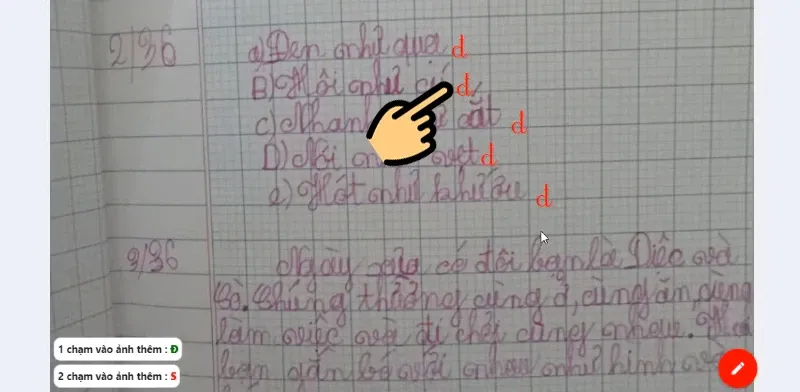 2/36
a) Đen như quạ d
B) Hôi như cú d
c) Nhanh cắt d
D) Nói vẹt d
e) Hót như khướu d
3/36
Ngày xửa có đôi bạn là Diệc và
Cò. Chúng thường cùng ở, cùng ăn, cùng
làm việc và đi chơi cùng nhau. Hai
bạn gắn bó với nhau như hình với
1 chạm vào ảnh thêm : Đ
2 chạm vào ảnh thêm : S